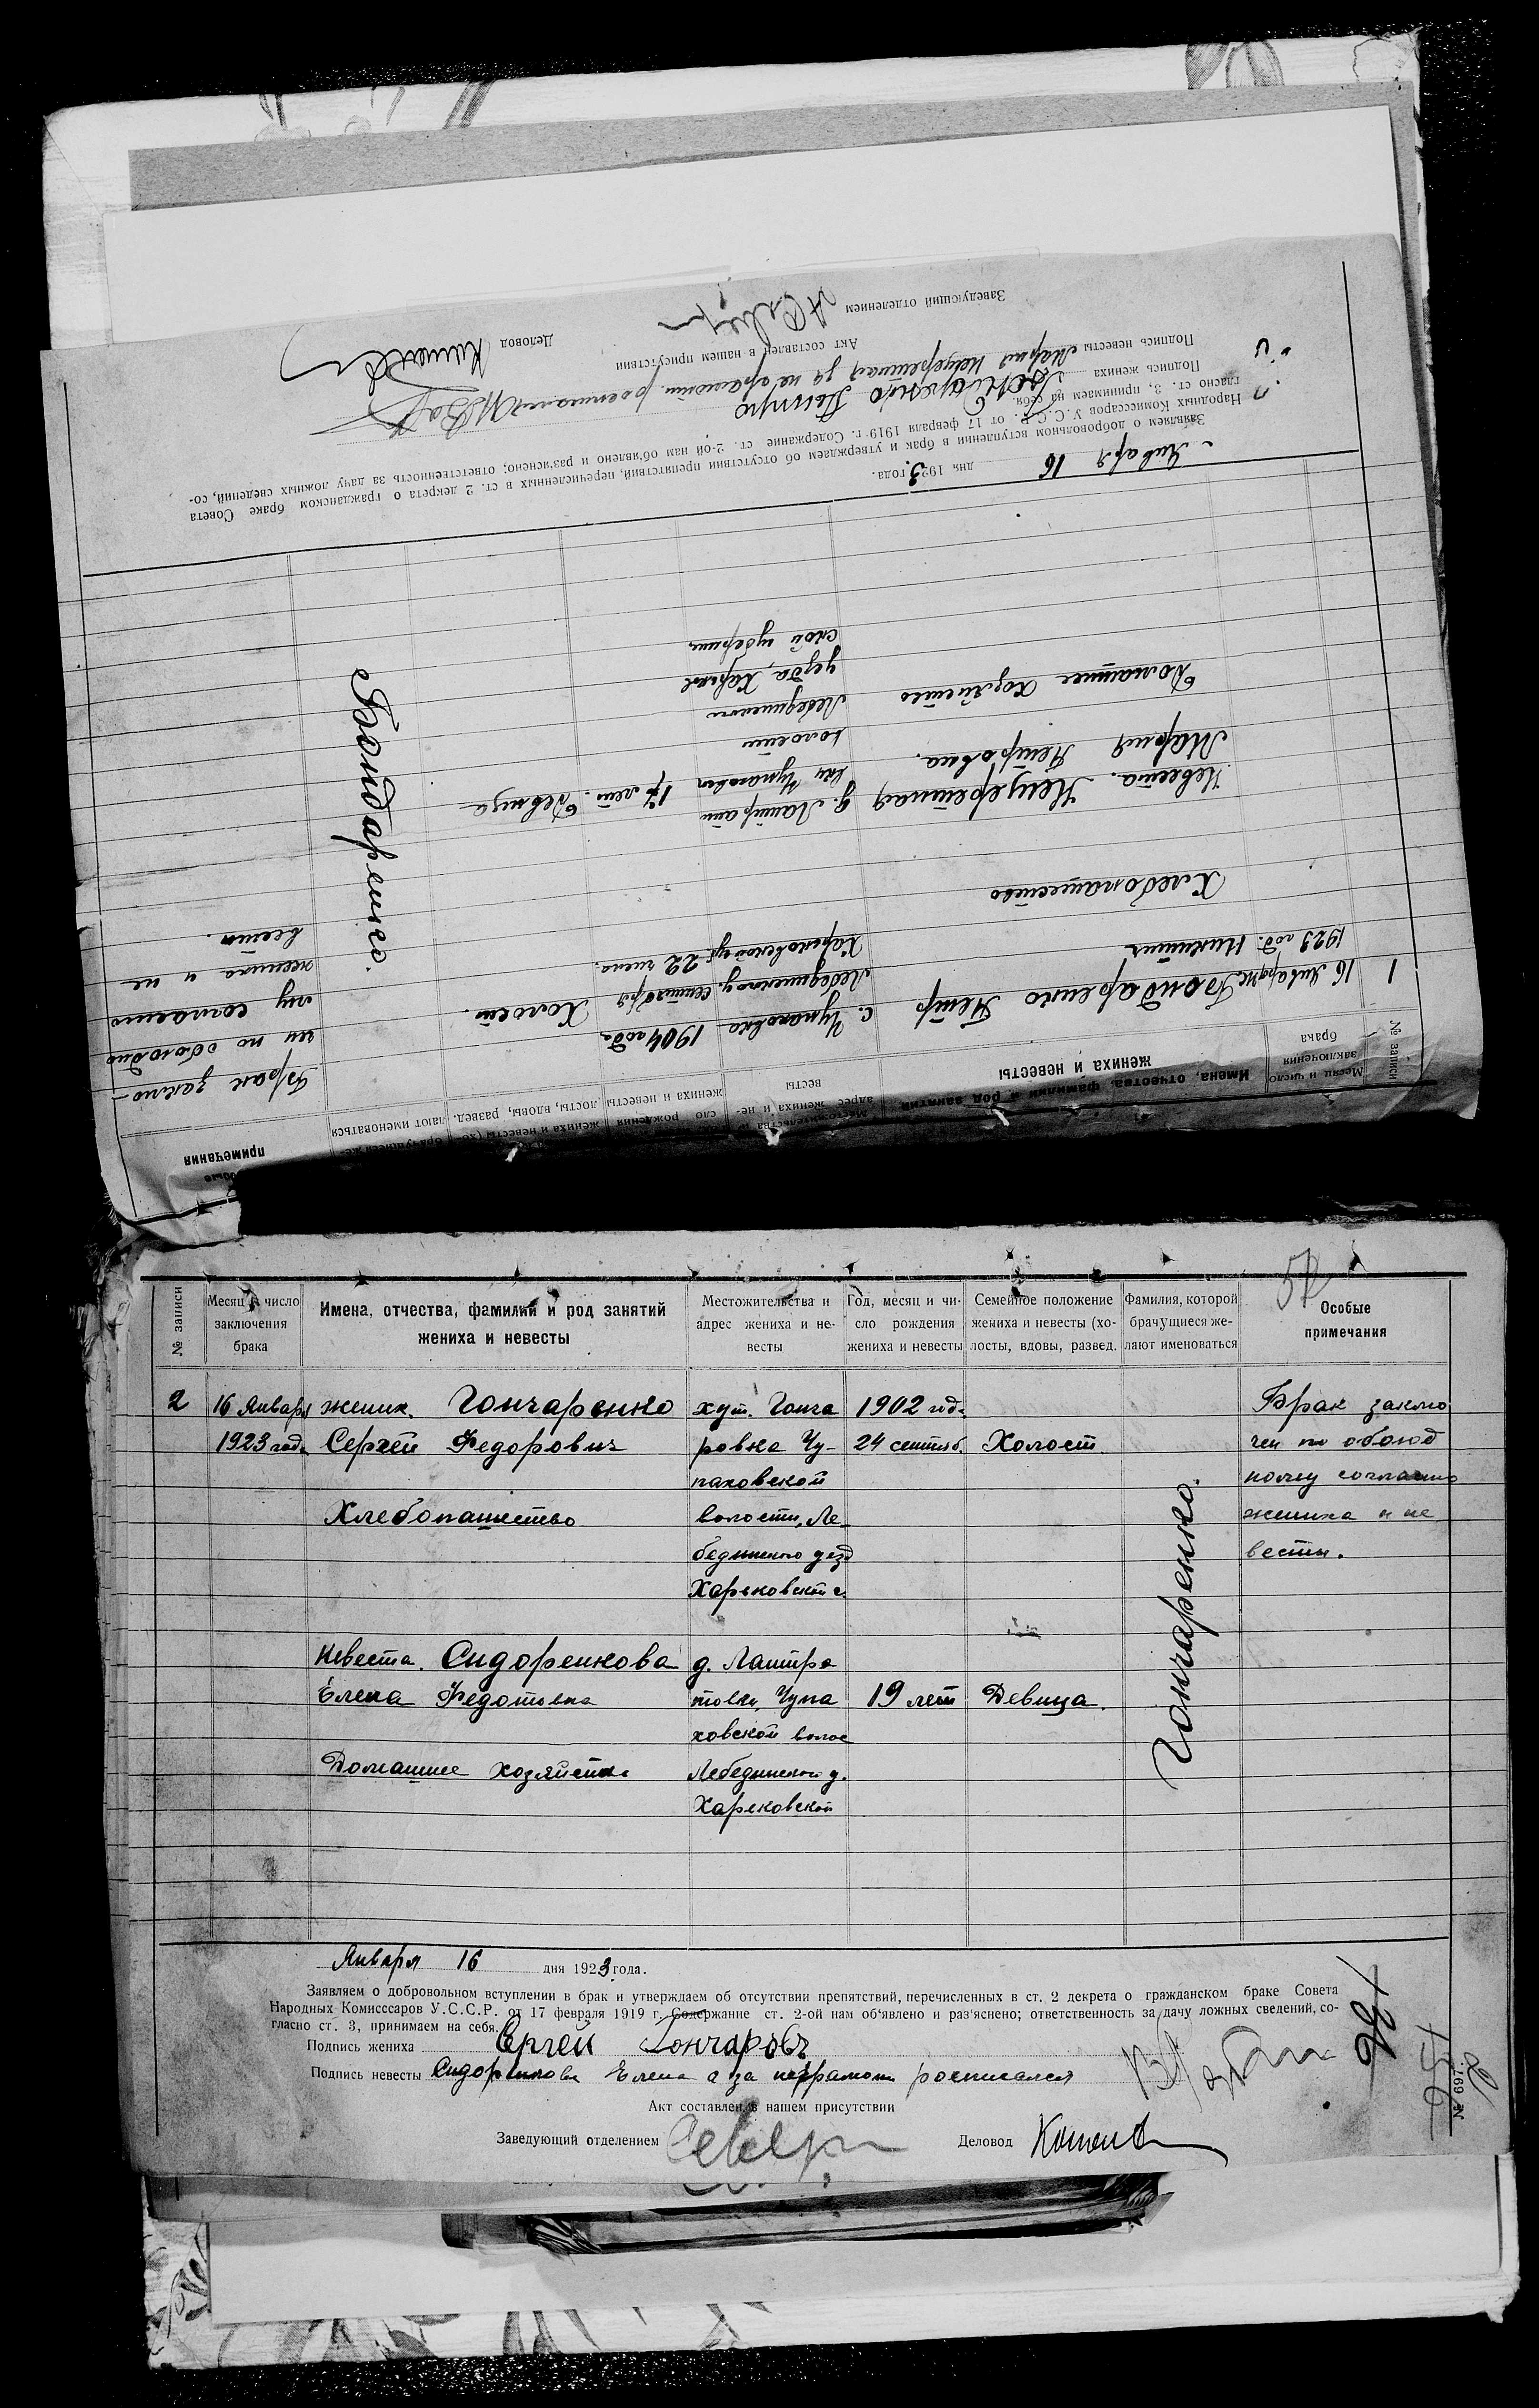 № записи
Месяц и число заключения брака
Имена, отчества, фамилии и род занятий жениха и невесты
Местожительства и адрес жениха и невесты
сло рождения жениха и невесты
жениха и невесты (холосты, вдовы, развед.
лают именоваться
примечания
1
16 Января
1923 год.
Бондаренко Петр
Никитич
Хлебопашество
с. Чупаховка
Лебединского у.
Харьковской губ.
1904 года
сентября
22 числа.
Холост.
Бондаренко.
Брак заклю-
чен по обоюдно
му согласию
жениха и не
весты.
Невеста.
Мария Петровна.
Домашнее хозяйство
д. Лантратовки Чупаховск
волости
Лебединского
уезда, Харьков
ской губернии
17 лет.
Девица
Января 16 дня 1923 года.
Заявляем о добровольном вступлении в брак и утверждаем об отсутствии препятствий, перечисленных в ст. 2 декрета о гражданском браке Совета
Народных Комиссаров У.С.С.Р. от 17 февраля 1919 г. Содержание ст. 2-ой нам об'явлено и раз'яснено; ответственность за дачу ложных сведений, со-
гласно ст. 3, принимаем на себя.
Подпись жениха Бондаренко Петро
Подпись невесты Мария
Акт составлен в нашем присутствии
Заведующий отделением
Деловод
№ записи
Месяц и число
заключения
брака
Имена, отчества, фамилии и род занятий
жениха и невесты
Местожительства и
адрес жениха и не-
весты
Год, месяц и чи-
сло рождения
жениха и невесты
Семейное положение
жениха и невесты (хо-
лосты, вдовы, развед.
Фамилия, которой
брачущиеся же-
лают именоваться
Особые
примечания
2
16 Января
1923 год.
жених. Гончаренко
Сергей Федорович
Хлебопашество
хут. Гонча
ровка Чу-
паховской
волости, Ле
бединского уезд
Харьковской г.
1902 год.
24 сентяб.
Холост.
Гончаренко.
Брак заклю
чен по обоюд
ному согласию
жениха и не
весты.
Невеста. Сидоренкова
Елена Федотовна
Домашнее хозяйство
д. Лантра
товки, Чупа
ховской волос
Лебединского у.
Харьковской
19 лет
Девица.
Января 16 дня 1923 года.
Заявляем о добровольном вступлении в брак и утверждаем об отсутствии препятствий, перечисленных в ст. 2 декрета о гражданском браке Совета
Народных Комисссаров У.С.С.Р. от 17 февраля 1919 г. Содержание ст. 2-ой нам об'явлено и раз'яснено; ответственность за дачу ложных сведений, со-
гласно ст. 3, принимаем на себя.
Подпись жениха Сергей Гончаровъ
Подпись невесты Сидоренкова Елена а за неграмотн росписался
Акт составлен в нашем присутствии
Заведующий отделением
Деловод
№ 697.